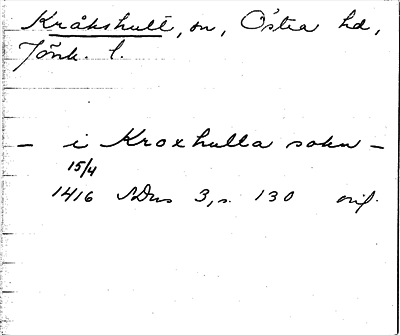 Kråkshult, sn, Östra hd,
Jönk. l.
– i Kroxhulta sokn –
15/4
1416 SDns 3, s. 130 orig.